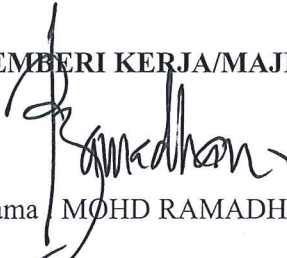 EMBERI KERJA/MAJI
Ramadhan
ama : MOHD RAMADH